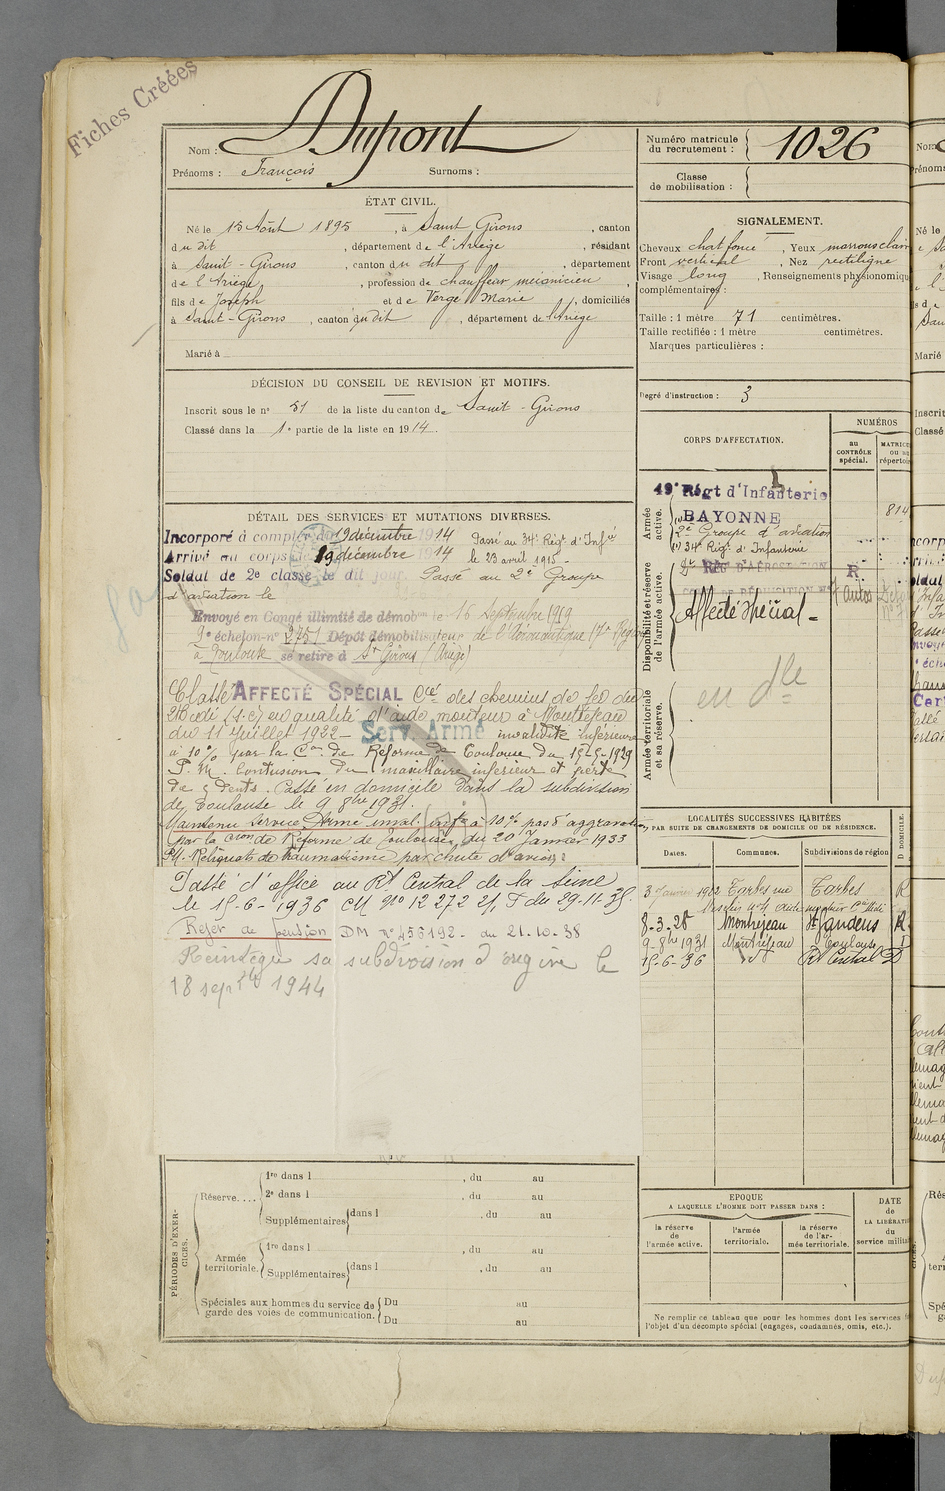 Fiches Créées
Nom : Dupont
Prénoms : François Surnoms :
Numéro matricule du recrutement : 1026
Classe de mobilisation :
ÉTAT CIVIL.
Né le 15 Août 1895, à Saint Girons, canton
du dit, département de l'Ariège, résidant
à Saint-Girons, canton du dit, département
de l'Ariège, profession de chauffeur mécanicien,
fils de Joseph et de Verge Marie, domiciliés
à Saint-Girons, canton du dit, département de l'Ariège
Marié à
SIGNALEMENT.
Cheveux chat foncé, Yeux marrons clair
Front vertical, Nez rectiligne
Visage long, Renseignements physionomiqu
complémentaires :
Taille : 1 mètre 71 centimètres.
Taille rectifiée : 1 mètre centimètres.
Marques particulières :
Degré d'instruction : 3
DÉCISION DU CONSEIL DE REVISION ET MOTIFS.
Inscrit sous le n° 51 de la liste du canton de Saint-Girons
Classé dans la 1e partie de la liste en 1914.
DÉTAIL DES SERVICES ET MUTATIONS DIVERSES.
Incorporé à compter du 19 décembre 1914 Passé au 34e Régt d'Infie
Arrivé au corps le 19 décembre 1914 le 23 avril 1915-
Soldat de 2e classe le dit jour. Passé au 2e Groupe
d'aviation le
Envoyé en Congé illimité de démobon le : 16 Septembre 1919
9e échelon-n° 2751 Dépôt démobilisateur de l'Aéronautique 17e Région
à Toulouse se retire à St Girons (Ariège)
Classé AFFECTÉ SPÉCIAL Cie des chemins de fer du
Midi (s.c) en qualité d'aide monteur à Montréjeau
du 11 juillet 1922- Serv. Armé invalidité inférieure
à 10% par la Con de Réforme de Toulouse du 15-5-1929
P. M. Contusion du maxillaire inférieur et perte
de 5 dents. Passé en domicile dans la subdivision
de Toulouse le 9 8bre 1931.
Maintenu Service Armé inval. infre à 10% pas d'aggravation
par la Cion de Réforme de Toulouse du 20 Janvier 1933
P.M. Reliquats de traumatisme par chute d'avion
Passé d'office au Rt Central de la Seine
le 15-6-1936 CM N° 12272 2/1 T du 29-11-35.
Rejet de pension DM N° 456192- du 21-10-38
Réintègre sa subdivision d'origine le
18 septbre 1944
CORPS D'AFFECTATION.
NUMÉROS
au CONTRÔLE spécial.
MATRIC OU AU répertoir
Armée active.
49e Régt d'Infanterie
BAYONNE
2e Groupe d'aviation
34e Régt d'Infanterie
814
Disponibilité et réserve de l'armée active.
R.
Affecté Spécial-
Armée territoriale et sa réserve.
en dle
LOCALITÉS SUCCESSIVES HABITÉES
PAR SUITE DE CHANGEMENTS DE DOMICILE OU DE RÉSIDENCE.
Dates. Communes. Subdivisions de région D DOMICILE.
3 Janvier 1922 Tarbes rue Tarbes R
8-3-28 Montréjeau St Gaudens R
9-8bre 1931 Montréjeau Toulouse D
15-6-36 d° Rt Central D
PÉRIODES D'EXERCICES.
Réserve....
1re dans l , du au
2e dans l , du au
Supplémentaires dans l , du au
Armée territoriale.
1re dans l , du au
Supplémentaires dans l , du au
Spéciales aux hommes du service de garde des voies de communication.
Du au
Du au
EPOQUE
A LAQUELLE L'HOMME DOIT PASSER DANS :
la réserve de l'armée active.
l'armée territoriale.
la réserve de l'armée territoriale.
DATE de LA LIBÉRATI du service milita
Ne remplir ce tableau que pour les hommes dont les services
l'objet d'un décompte spécial (engagés, condamnés, omis, etc.).